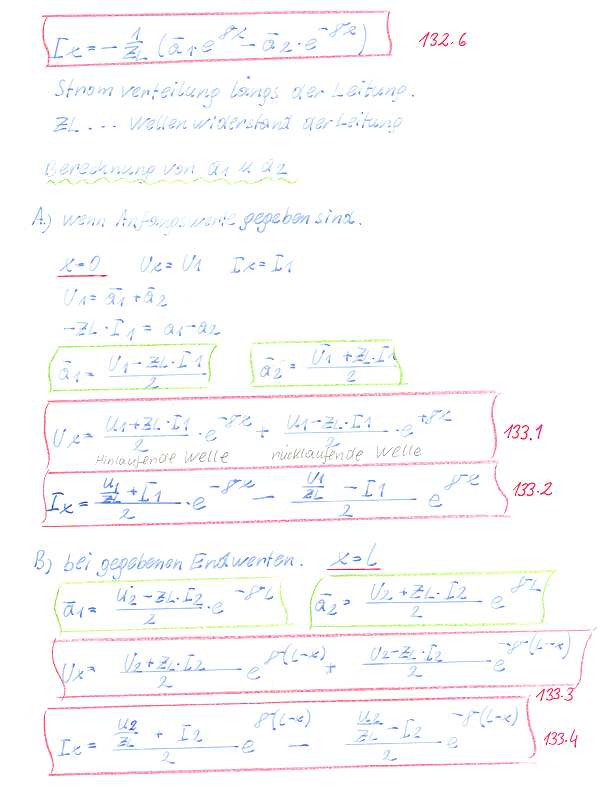 Ix = - 1/ZL (ā1·e^γx - ā2·e^-γx) 132.6
Stromverteilung längs der Leitung.
ZL ... Wellenwiderstand der Leitung
Berechnung von ā1 u ā2
A.) wenn Anfangswerte gegeben sind.
x=0 Ux = U1 Ix = I1
U1 = ā1 + ā2
-ZL·I1 = a1-a2
ā1 = (U1 - ZL·I1)/2 ā2 = (U1 + ZL·I1)/2
Ux = (U1+ZL·I1)/2 · e^-γx + (U1-ZL·I1)/2 · e^+γx 133.1
Hinlaufende Welle rücklaufende Welle
Ix = (U1/ZL + I1)/2 · e^-γx - (U1/ZL - I1)/2 e^γx 133.2
B) bei gegebenen Endwerten. x=L
ā1 = (U2 - ZL·I2)/2 · e^-γL ā2 = (U2 + ZL·I2)/2 e^γL
Ux = (U2+ZL·I2)/2 e^γ(L-x) + (U2-ZL·I2)/2 e^-γ(L-x)
133.3
Ix = (U2/ZL + I2)/2 e^γ(L-x) - (U2/ZL - I2)/2 e^-γ(L-x) 133.4